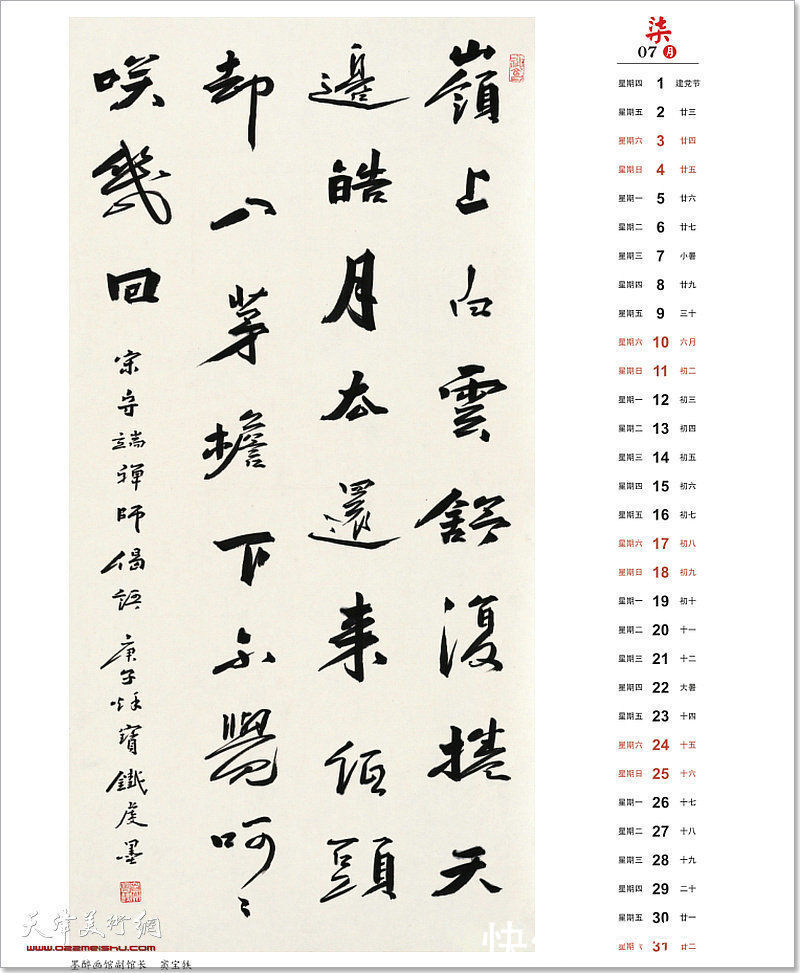 嶺上白雲舒復捲天
邊皓月去還來低頭
却入茅檐下不覺呵〻
咲幾回
宋守端禅師偈語 庚子秋寶鐵虔墨
柒
07 月
星期四 1 建党节
星期五 2 廿三
星期六 3 廿四
星期日 4 廿五
星期一 5 廿六
星期二 6 廿七
星期三 7 小暑
星期四 8 廿九
星期五 9 三十
星期六 10 六月
星期日 11 初二
星期一 12 初三
星期二 13 初四
星期三 14 初五
星期四 15 初六
星期五 16 初七
星期六 17 初八
星期日 18 初九
星期一 19 初十
星期二 20 十一
星期三 21 十二
星期四 22 大暑
星期五 23 十四
星期六 24 十五
星期日 25 十六
星期一 26 十七
星期二 27 十八
星期三 28 十九
星期四 29 二十
星期五 30 廿一
星期六 31 廿二
天津美術網
www.022meishu.com
快
墨醉画馆副馆长 窦宝铁